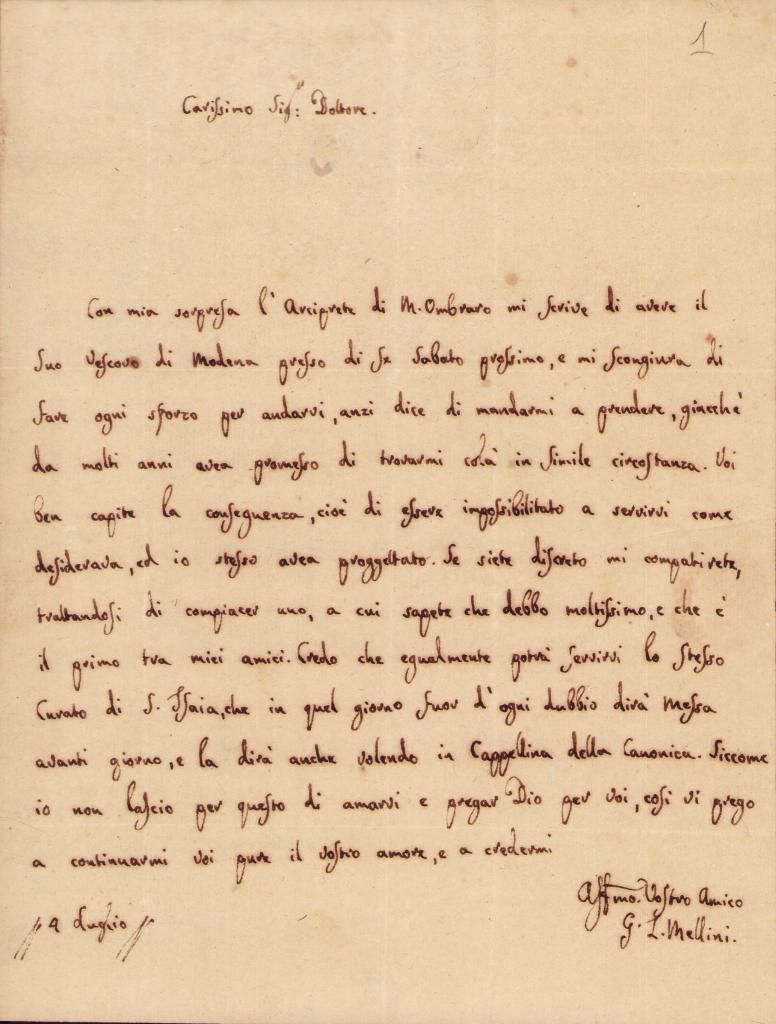 1
Carissimo Sigr: Dottore.
Con mia sorpresa l' Arciprete di M. Ombraro mi scrive di avere il
suo Vescovo di Modena presso di se Sabato prossimo, e mi scongiura di
fare ogni sforzo per andarvi, anzi dice di mandarmi a prendere, giacchè
da molti anni avea promesso di trovarmi colà in simile circostanza. Voi
ben capite la conseguenza, cioè di essere impossibilitato a servirvi come
desiderava, ed io stesso avea proggettato. Se siete discreto mi compatirete,
trattandosi di compiacer uno, a cui sapete che debbo moltissimo, e che è
il primo tra miei amici. Credo che egualmente potrà servirvi lo stesso
Curato di S. Isaia, che in quel giorno fuor d' ogni dubbio dirà Messa
avanti giorno, e la dirà anche volendo in Cappellina della Canonica. Siccome
io non lascio per questo di amarvi e pregar Dio per voi, così vi prego
a continuarmi voi pure il vostro amore, e a credermi
Affmo. Vostro Amico
G. L. Mellini.
// 4 Luglio //